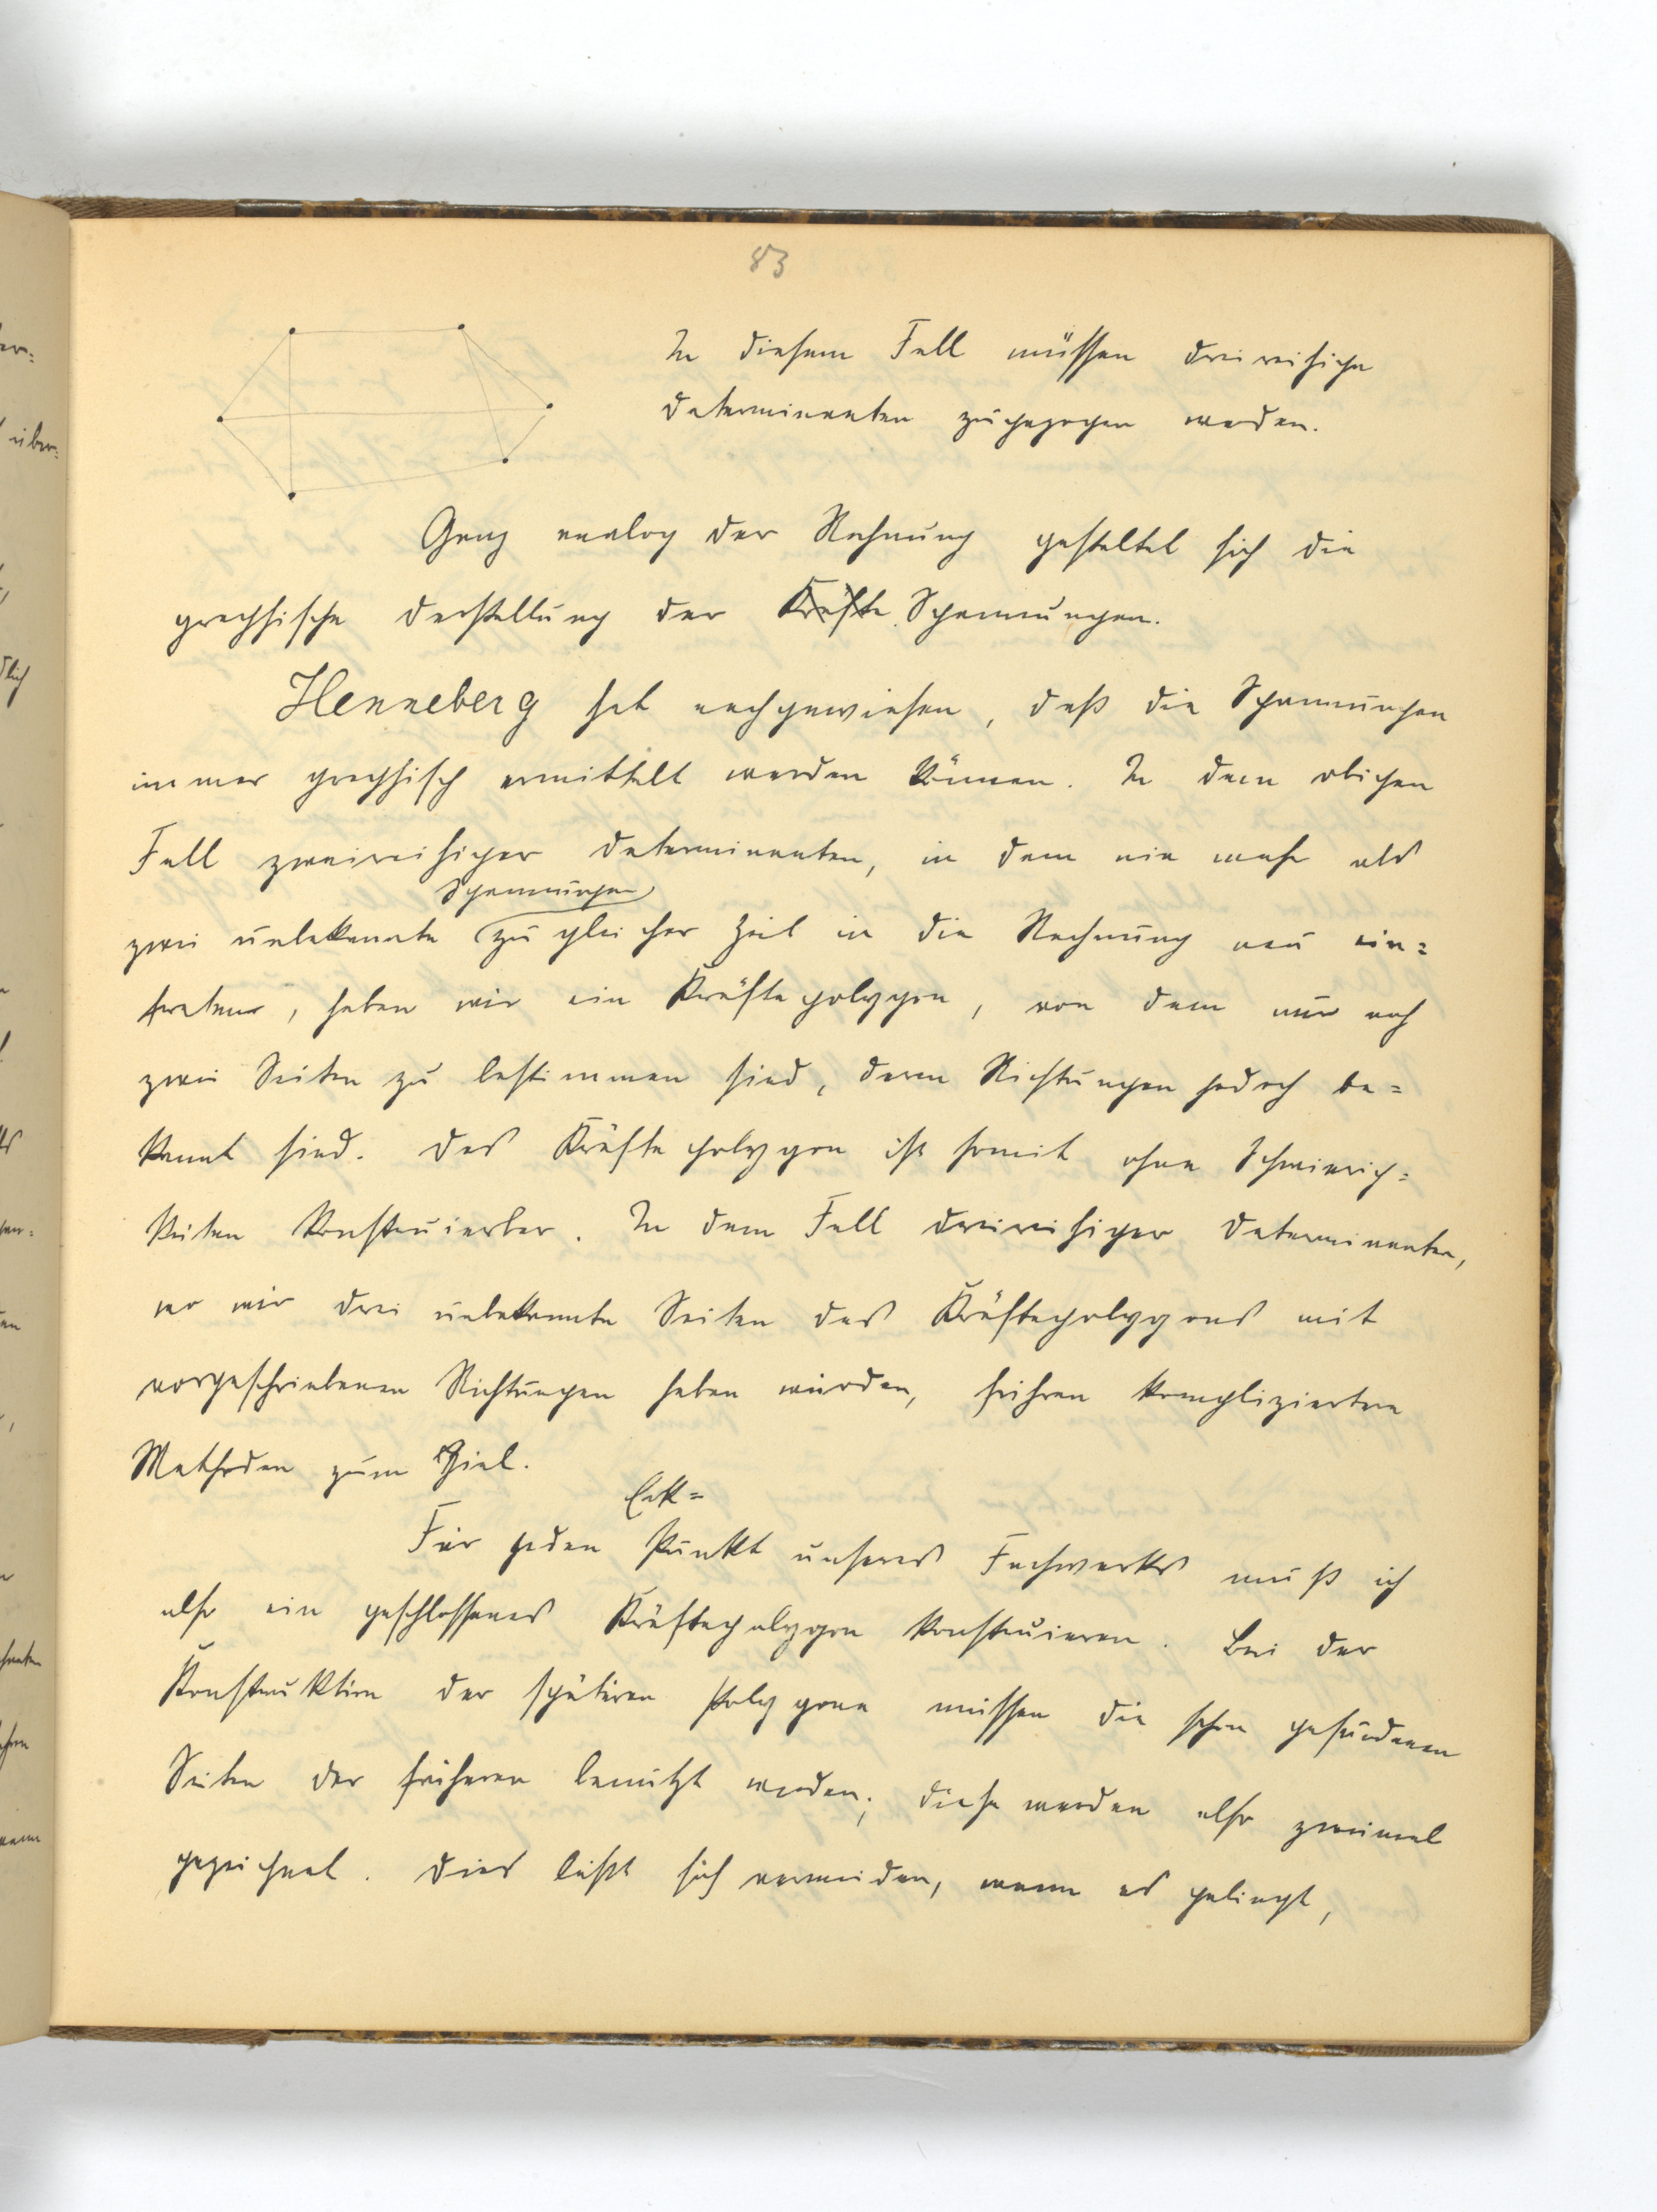 83
In diesem Fall müssen dreireihige
Determinanten zugezogen werden.
Ganz analog der Rechnung gestaltet sich die
graphische Darstellung der Kräfte Spannungen.
Henneberg hat nachgewiesen, daß die Spannungen
immer graphisch ermittelt werden können. In dem obigen
Fall zweireihiger Determinanten, in dem nie mehr als
Spannungen
zwei unbekannte zu gleicher Zeit in die Rechnung neu ein=
treten, haben wir ein Kräftepolygon, von dem nur noch
zwei Seiten zu bestimmen sind, deren Richtungen jedoch be=
kannt sind. Das Kräftepolygon ist somit ohne Schwierig=
keiten konstruierbar. In dem Fall dreireihiger Determinanten,
wo wir drei unbekannte Seiten des Kräftepolygons mit
vorgeschriebenen Richtungen haben würden, führen kompliziertere
Methoden zum Ziel.
Eck=
Für jeden Punkt unseres Fachwerks muß ich
also ein geschlossenes Kräftepolygon konstruieren. Bei der
Konstruktion der späteren Polygone müssen die schon gefundenen
Seiten der früheren benützt werden; diese werden also zweimal
gezeichnet. Dies läßt sich vermeiden, wenn es gelingt,